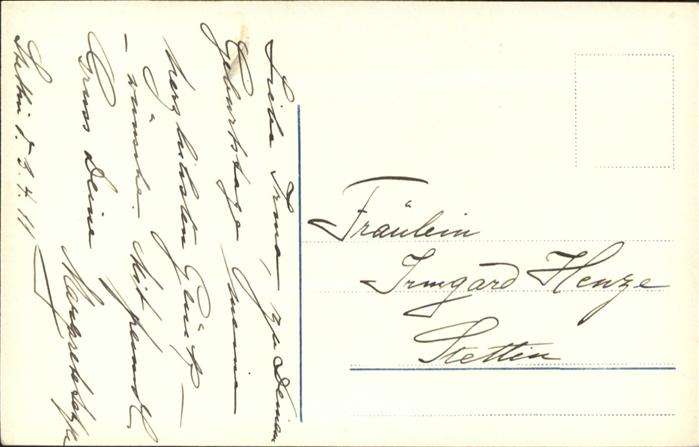 Liebe Irma, zu Deinem
Geburtstage meine
herzlichsten Glück-
-wünsche. Mit freundl.
Gruss Deine Margarete
Stettin d. 9.4.11
Fräulein
Irmgard Henze
Stettin